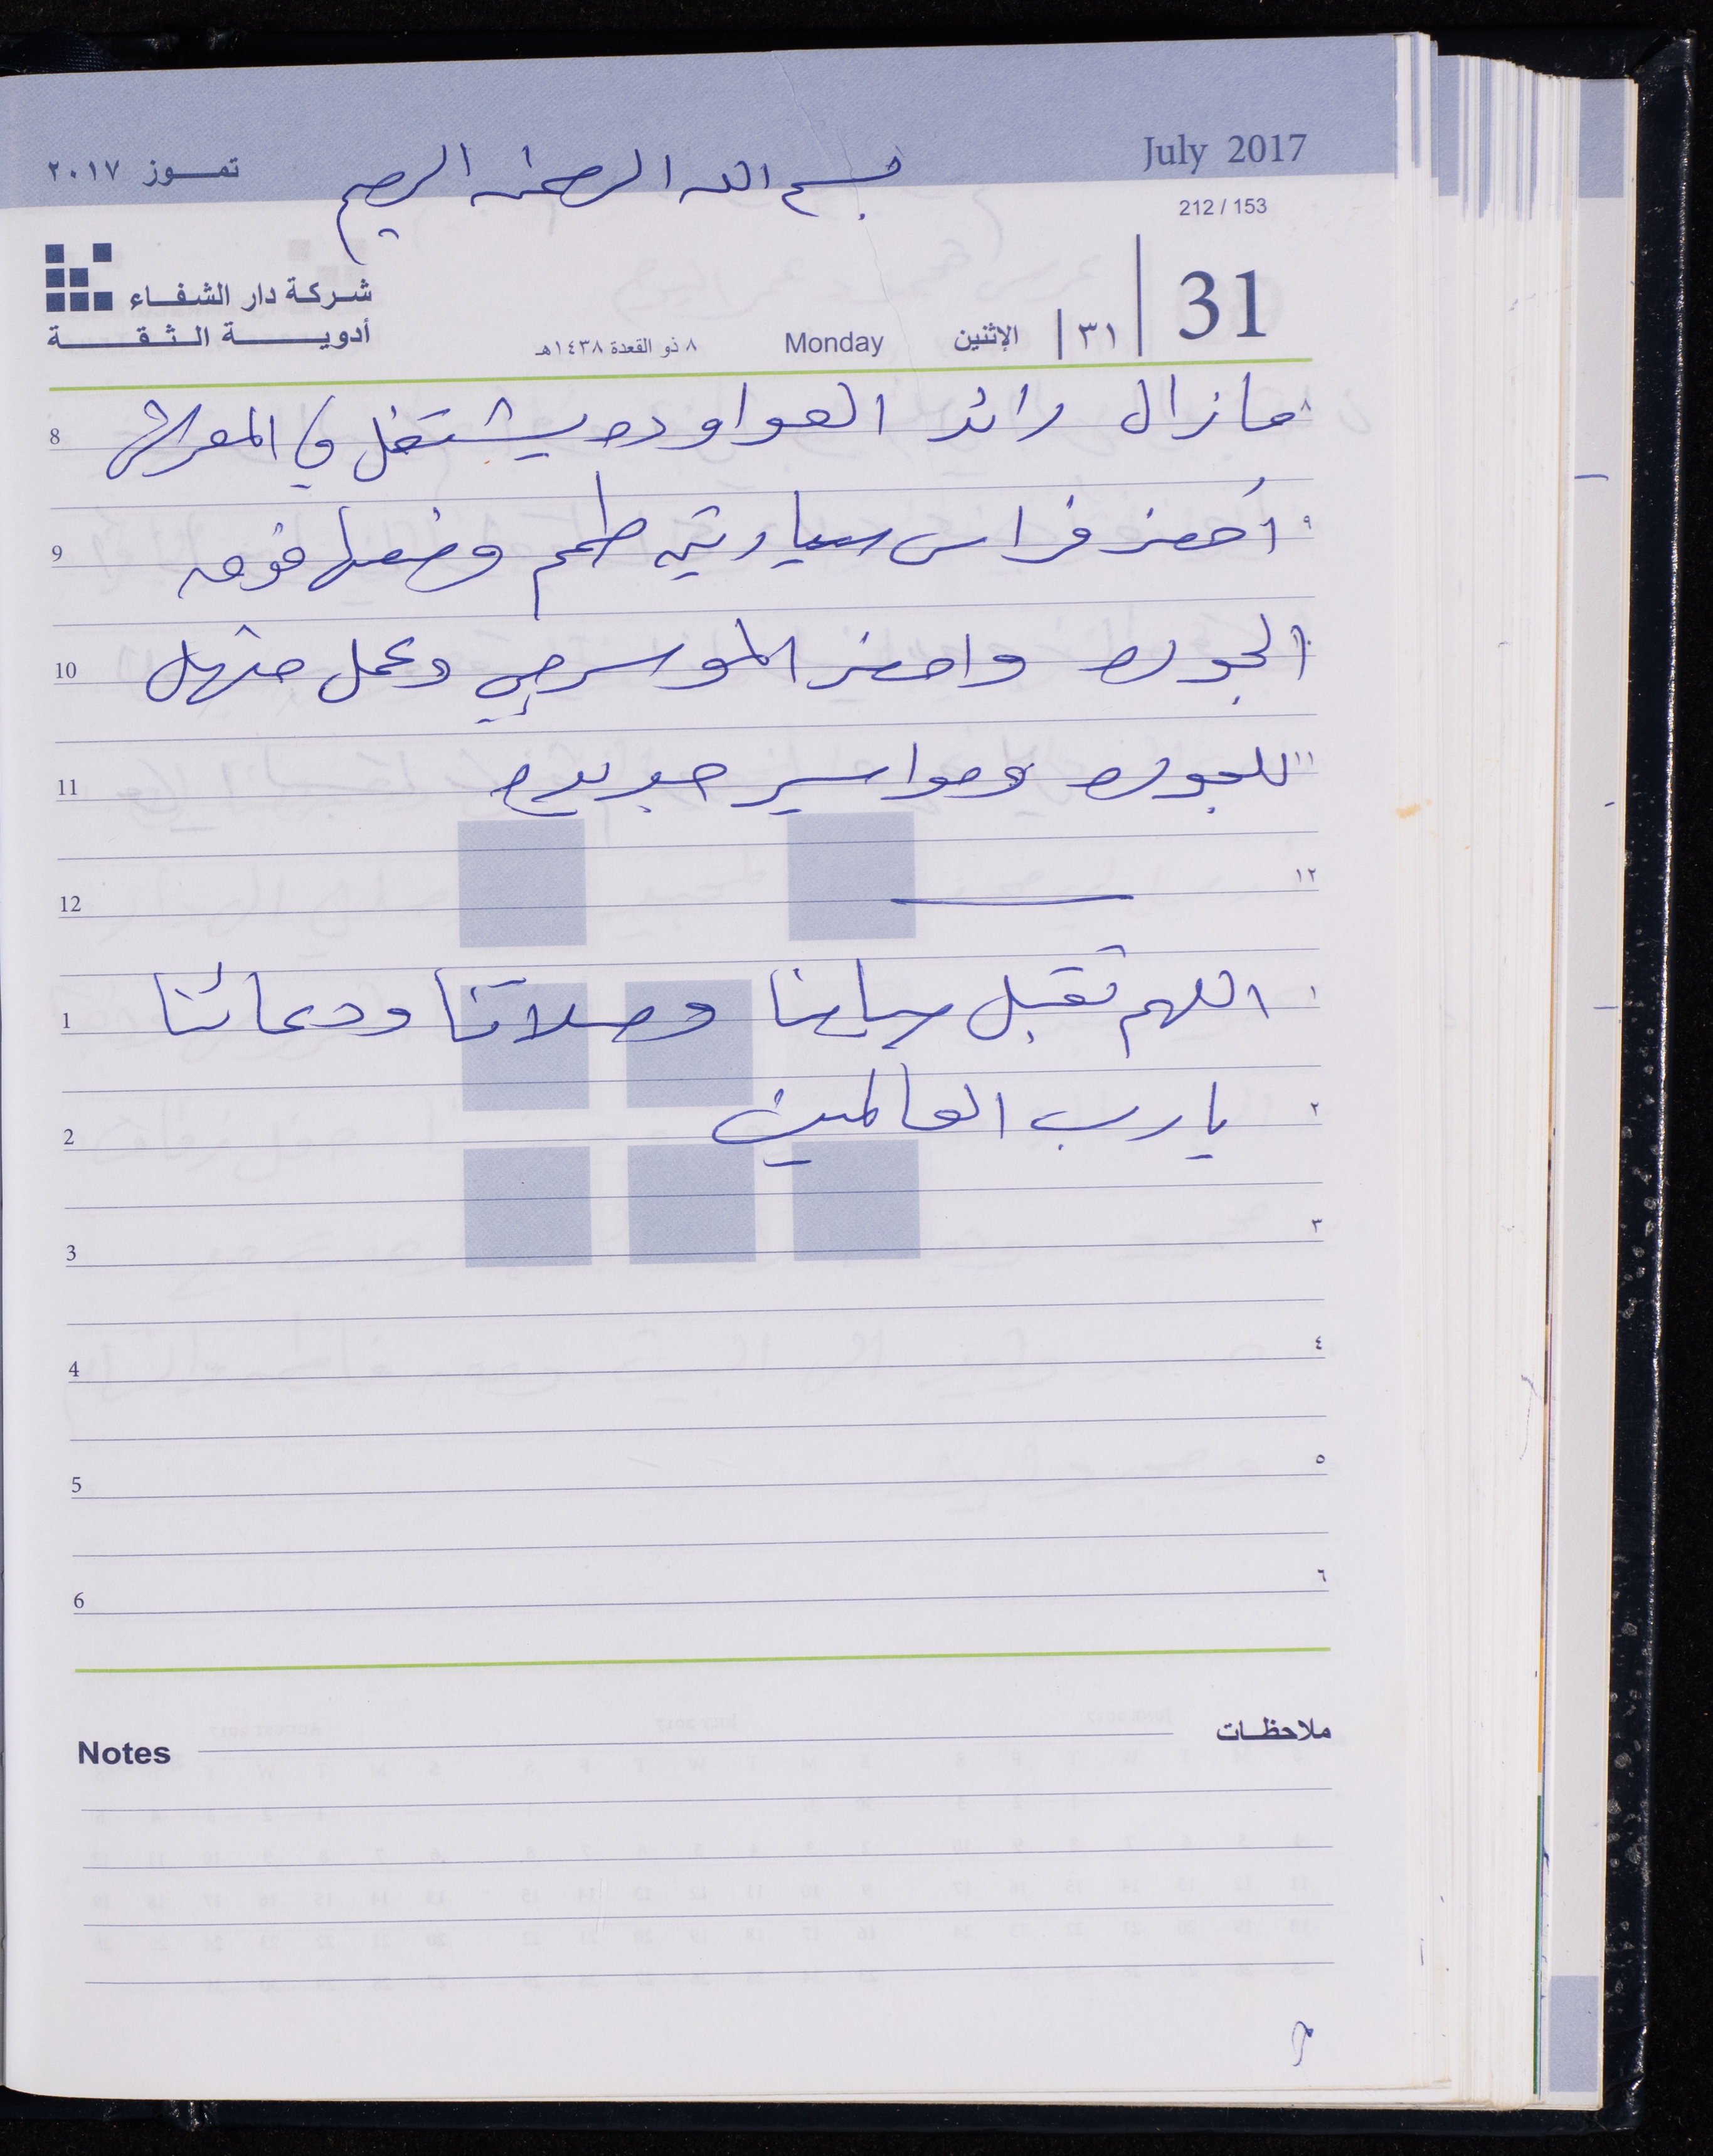 July 2017
تموز ٢٠١٧
بسم الله الرحمن الرحيم
212 / 153
31
٣١
الإثنين
Monday
٨ ذو القعدة ١٤٣٨هـ
شركة دار الشفاء
أدوية الثقة
8 ٨ مازال رائد العواوده يشتغل في المعرش
9 ٩ أحضر فراس سيارتين طمم وضعها فوق
10 ١٠ الجوره واحضر الموسرجي وعمل منهل
11 ١١ للجوره ومواسير جديده
12 ١٢
1 ١ اللهم تقبل صيامنا وصلاتنا ودعائنا
2 ٢ يارب العالمين
3 ٣
4 ٤
5 ٥
6 ٦
Notes ملاحظات